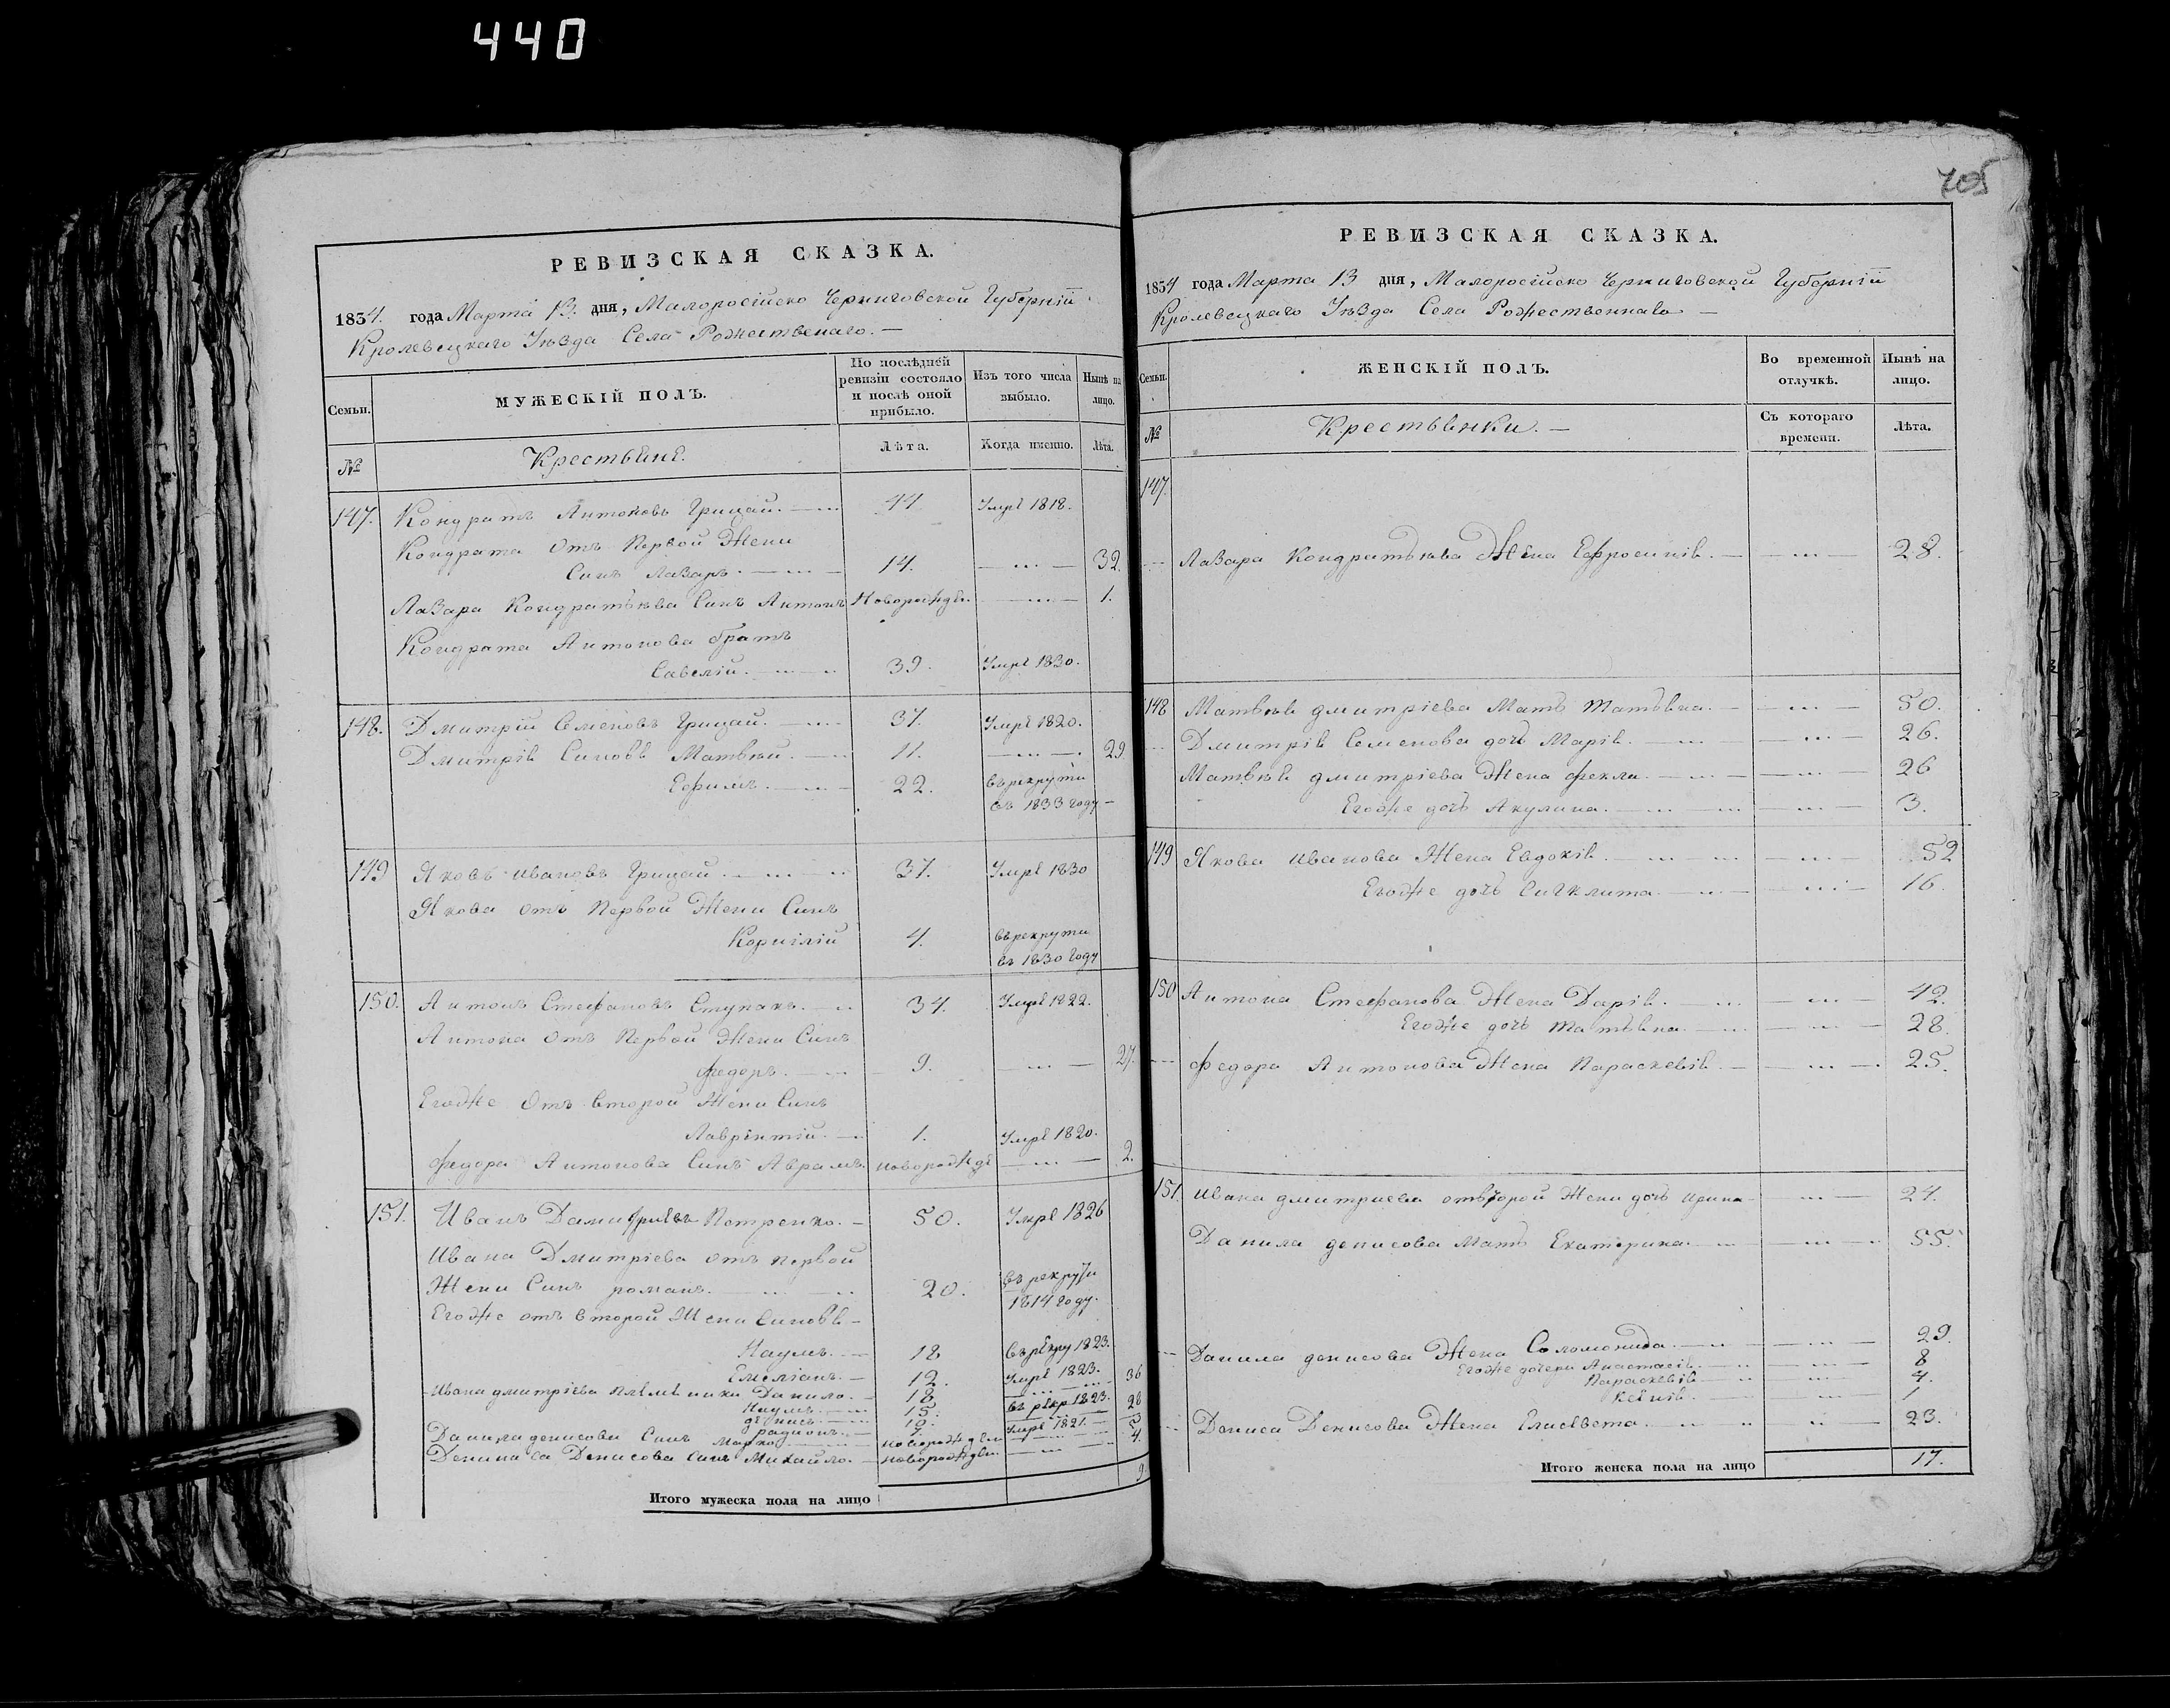 440
705
РЕВИЗСКАЯ СКАЗКА.
1834. года Марта 13. дня, Малоросійско Черниговской Губерніи
Кролевецкаго Уѣзда Села Рожественаго. —
Семьи.
МУЖЕСКІЙ ПОЛЪ.
По послѣдней ревизіи состояло и послѣ оной прибыло.
Изъ того числа выбыло.
Нынѣ на лицо.
№
Крестьяне.
Лѣта.
Когда именно.
Лѣта.
147. Кондратъ Антоновъ Грицай. 44 Умре 1818.
Кондрата отъ Первой Жени
Синъ Лазаръ. 14. 32.
Лазара Кондратьева Синъ Антонъ Новорожден. 1.
Кондрата Антонова братъ
Савелій. 39. Умре 1830.
148. Дмитрій Семеновъ Грицай. 37. Умре 1820.
Дмитрія Синовя Матвѣй. 11. 29
Ефимъ. 22. въ рекрути
въ 1833 году
149 Яковъ Ивановъ Грицай. 37. Умре 1830
Якова отъ Первой Жени Синъ
Корнілій 4. въ рекрути
въ 1830 году
150. Антонъ Стефановъ Ступакъ. 34. Умре 1822.
Антона отъ Первой Жени Синъ
Федоръ. 9. 27.
Егоже отъ второй Жени Синъ
Лаврентій. 1. Умре 1820.
Федора Антонова Синъ Аврамъ. новорожде 2.
151. Иванъ Дамитриевъ Петренко. 50. Умре 1826
Ивана Дмитріева отъ первой
Жени Синъ романъ. 20. въ рекрути
1814 году.
Егоже отъ второй Жени Синовя
Наумъ. 18 въ рекру 1823.
Емеліанъ. 12. Умре 1823.
Ивана дмитріева племеники Данило. 18 36
Наумъ. 15. въ рекр 1823.
денисъ. 10. 28
радионъ. 7. Умре 1821.
Данила денисова Синъ Марко новорожден 5
Денини са Денисова Синъ Михайло. новорожден. 4.
Итого мужеска пола на лицо 9
РЕВИЗСКАЯ СКАЗКА.
1834 года Марта 13 дня, Малоросійско Черниговской Губерніи
Кролевецкаго Уѣзда Села Рожественнаго —
Семьи.
ЖЕНСКІЙ ПОЛЪ.
Во временной отлучкѣ.
Нынѣ на лицо.
№
Крестьянки. —
Съ котораго времени.
Лѣта.
147.
Лазара Кондратьева Жена Ефросинія. 28.
148 Матвѣя дмитріева Мать Татьяна. 50.
Дмитрія Семенова дочь Марія. 26.
Матвѣя дмитріева Жена Фекла. 26
Егоже дочь Акулина. 3.
149 Якова Иванова Жена Евдокія. 52
Егоже дочь Сигклита. 16.
150 Антона Стефанова Жена Дарія. 42.
Егоже дочь Татьяна. 28.
Федора Антонова Жена Параскевія. 25.
151. Ивана дмитриева отвторой Жени дочь Ирина 24.
Данила денисова Мать Екатерина. 55.
Данила денисова Жена Соломонида. 29.
Егоже дочери Анастасія. 8
Параскевія 4.
Ксенія. 1
Дениса Денисова Жена Елисвета. 23.
Итого женска пола на лицо 17.